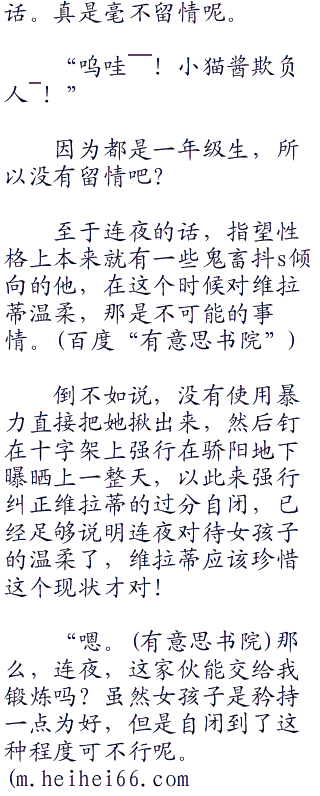 话。真是毫不留情呢。
“呜哇——！小猫酱欺负
人—！”
因为都是一年级生，所
以没有留情吧？
至于连夜的话，指望性
格上本来就有一些鬼畜抖s倾
向的他，在这个时候对维拉
蒂温柔，那是不可能的事
情。(百度“有意思书院”)
倒不如说，没有使用暴
力直接把她揪出来，然后钉
在十字架上强行在骄阳地下
曝晒上一整天，以此来强行
纠正维拉蒂的过分自闭，已
经足够说明连夜对待女孩子
的温柔了，维拉蒂应该珍惜
这个现状才对！
“嗯。(有意思书院)那
么，连夜，这家伙能交给我
锻炼吗？虽然女孩子是矜持
一点为好，但是自闭到了这
种程度可不行呢。
(m.heihei66.com